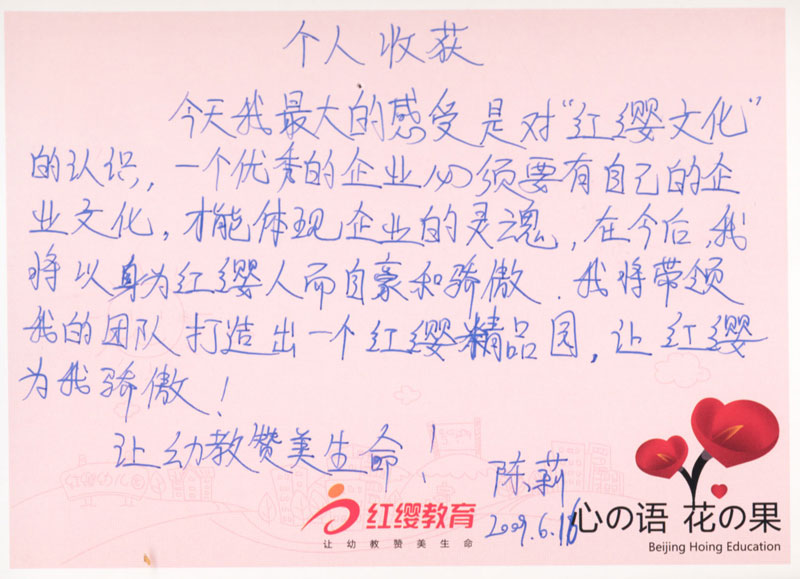 个人收获
今天我最大的感受是对“红缨文化”
的认识，一个优秀的企业必须要有自己的企
业文化，才能体现企业的灵魂，在今后，我
将以身为红缨人而自豪和骄傲．我将带领
我的团队打造出一个红缨精品园，让红缨
为我骄傲！
让幼教赞美生命！
陈莉
2009.6.16
红缨教育
让幼教赞美生命
心の语 花の果
Beijing Hoing Education